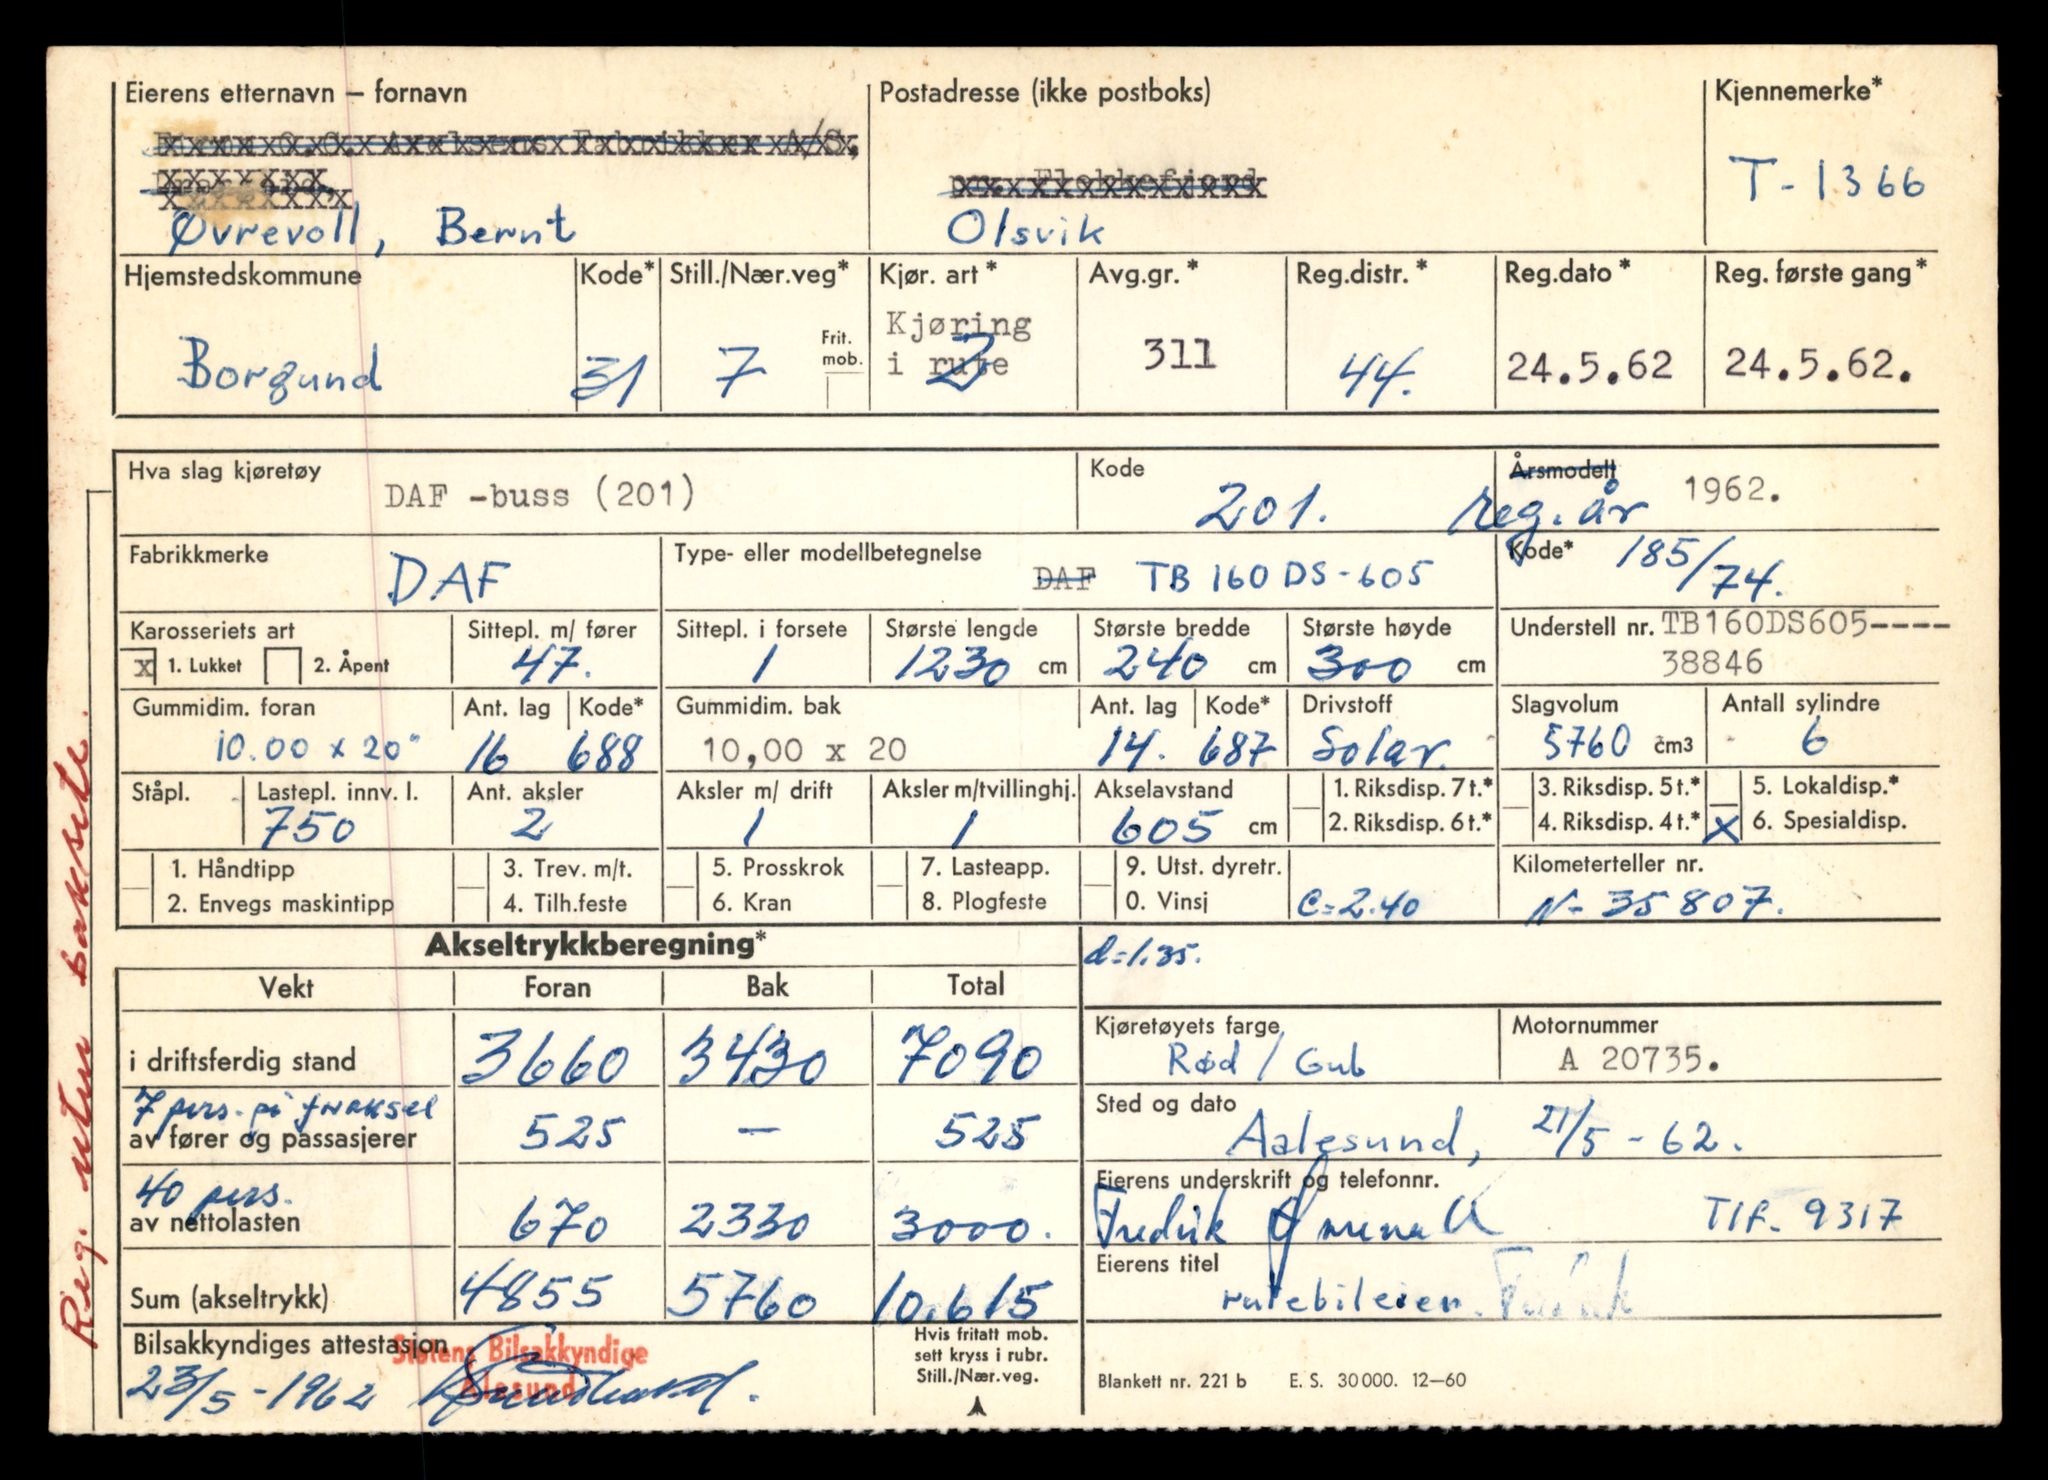 Eierens etternavn – fornavn Postadresse (ikke postboks) Kjennemerke*
Øvrevoll, Bernt Olsvik T-1366
Hjemstedskommune Kode* Still./Nær.veg* Kjør. art* Avg.gr.* Reg.distr.* Reg.dato* Reg. første gang*
Frit. mob.
Kjøring
i rute
Borgund 31 7 311 44. 24.5.62 24.5.62.
Hva slag kjøretøy DAF -buss (201) Kode 201. Årsmodell reg. år 1962.
Fabrikkmerke DAF Type- eller modellbetegnelse DAF TB 160 DS-605 Kode* 185/74.
Karosseriets art Sittepl. m/ fører Sittepl. i forsete Største lengde Største bredde Største høyde Understell nr. TB160DS605----
x 1. Lukket 2. Åpent 47. 1 1230 cm 240 cm 300 cm 38846
Gummidim. foran Ant. lag Kode* Gummidim. bak Ant. lag Kode* Drivstoff Slagvolum Antall sylindre
10.00 x 20" 16 688 10,00 x 20 14. 687 Solar. 5760 cm3 6
Ståpl. Lastepl. innv. l. Ant. aksler Aksler m/ drift Aksler m/tvillinghj. Akselavstand 1. Riksdisp. 7 t.* 3. Riksdisp. 5 t.* 5. Lokaldisp.*
750 2 1 1 605 cm 2. Riksdisp. 6 t.* 4. Riksdisp. 4 t.* X 6. Spesialdisp.
1. Håndtipp 3. Trev. m/t. 5. Prosskrok 7. Lasteapp. 9. Utst. dyretr. Kilometerteller nr.
2. Envegs maskintipp 4. Tilh.feste 6. Kran 8. Plogfeste 0. Vinsj c=2.40 N- 35807.
Akseltrykkberegning* d=1.35.
Vekt Foran Bak Total
i driftsferdig stand 3660 3430 7090
7 pers. på foraksel
av fører og passasjerer 525 – 525
40 pers.
av nettolasten 670 2330 3000.
Sum (akseltrykk) 4855 5760 10.615
Kjøretøyets farge Motornummer
Rød / Gub A 20735.
Sted og dato
Aalesund, 21/5-62.
Eierens underskrift og telefonnr.
Fredrik Tlf. 9317
Eierens titel
rutebileier.
Bilsakkyndiges attestasjon
Statens Bilsakkyndige
Ålesund
23/5-1962
Hvis fritatt mob.
sett kryss i rubr.
Still./Nær.veg.
Blankett nr. 221 b E. S. 30 000. 12–60
Reg. uten bakside.